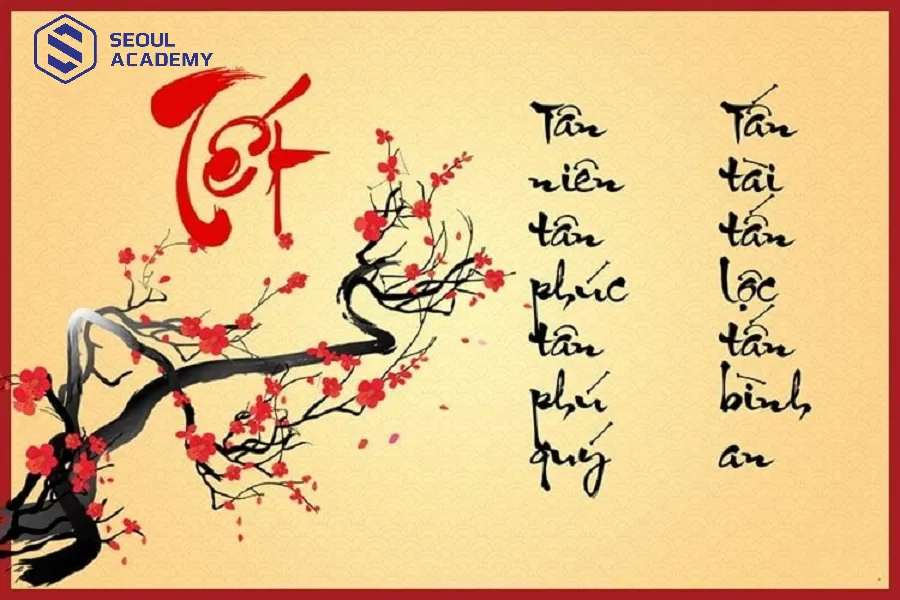 SEOUL
ACADEMY
Tết
Tân
niên
tân
phúc
tân
phú
quý
Tấn
tài
tấn
lộc
tấn
bình
an